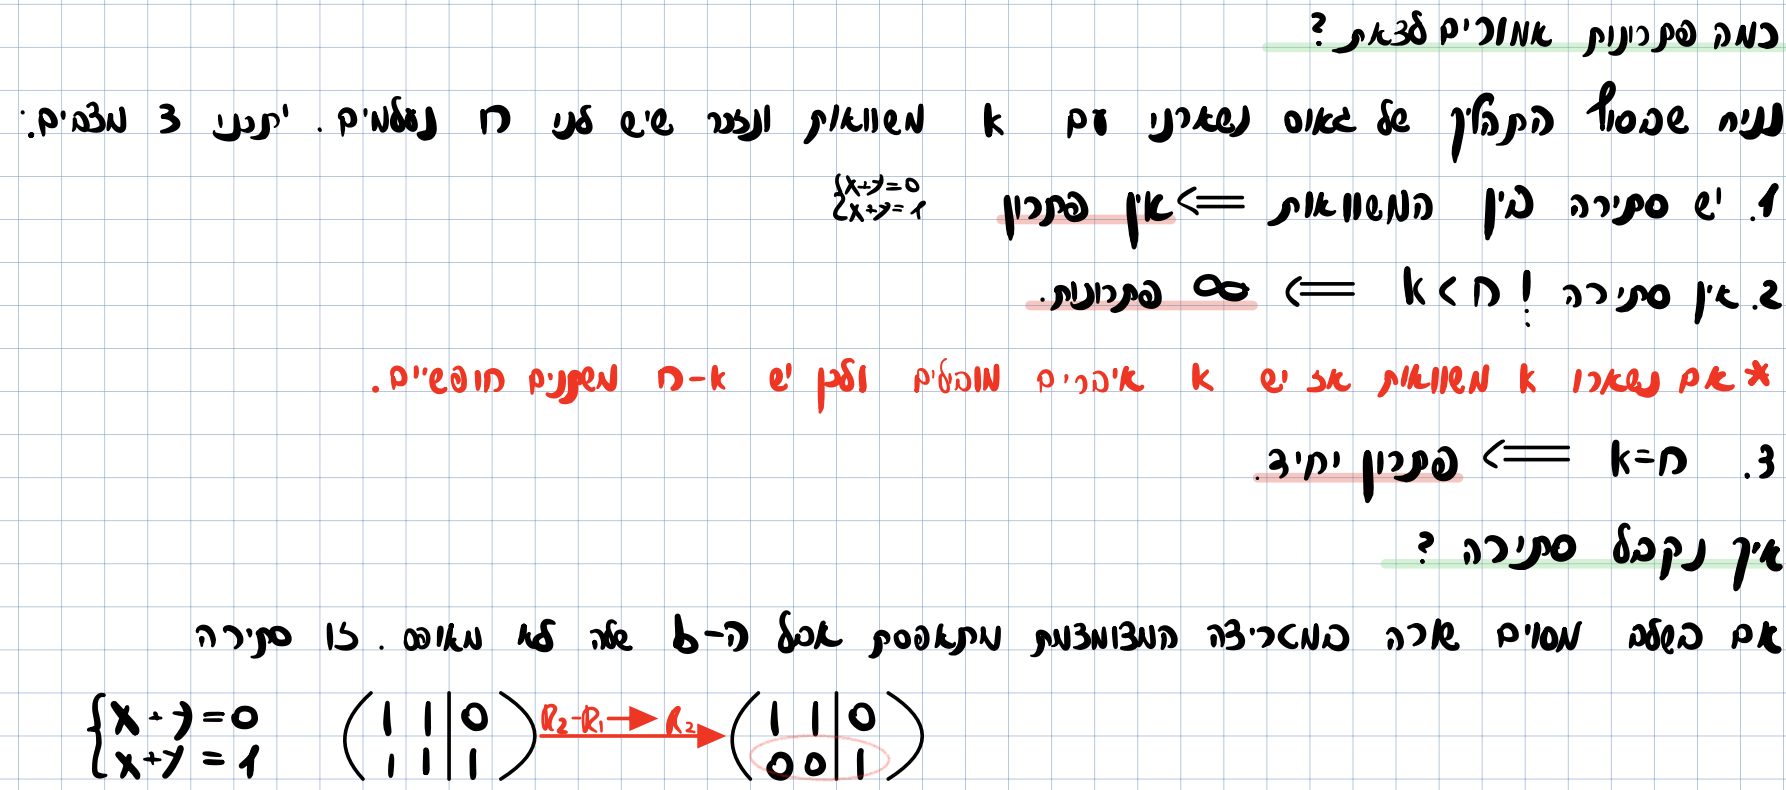 כמה פתרונות אמורים לצאת?
נניח שבסוף התהליך של גאוס נשארנו עם k משוואות ונזכר שיש לנו n נעלמים. יתכנו 3 מצבים:
1. יש סתירה בין המשוואות ⟸ אין פתרון {x+y=0 x+y=1
2. אין סתירה ! k<n ⟸ ∞ פתרונות.
* אם נשארו k משוואות אז יש k איברים מובילים ולכן יש n-k משתנים חופשיים.
3. k=n ⟸ פתרון יחיד.
איך נקבל סתירה?
אם בשלב מסוים שורה במטריצה המצומצמת מתאפסת אבל ה-b שלה לא מאופס. זו סתירה
{x+y=0 (1 1|0) R₂-R₁→R₂ (1 1|0)
x+y=1 (1 1|1) (0 0|1)